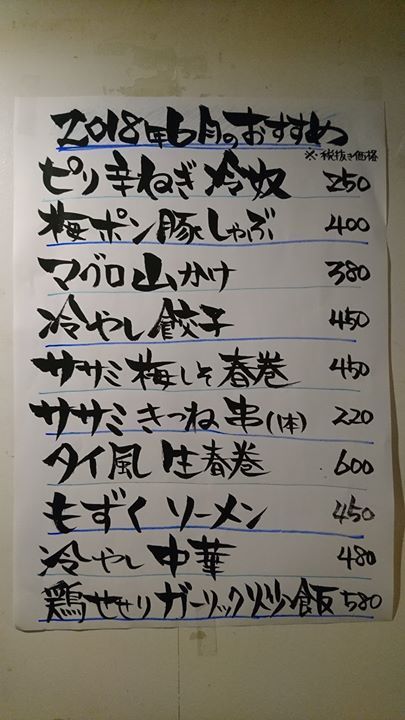 2018年6月のおすすめ
※税抜き価格
ピリ辛ねぎ冷奴 250
梅ポン豚しゃぶ 400
マグロ山かけ 380
冷やし餃子 450
ササミ梅しそ春巻 450
ササミきつね串(1本) 220
タイ風生春巻 600
もずくソーメン 450
冷やし中華 480
鶏せせりガーリック炒飯 580